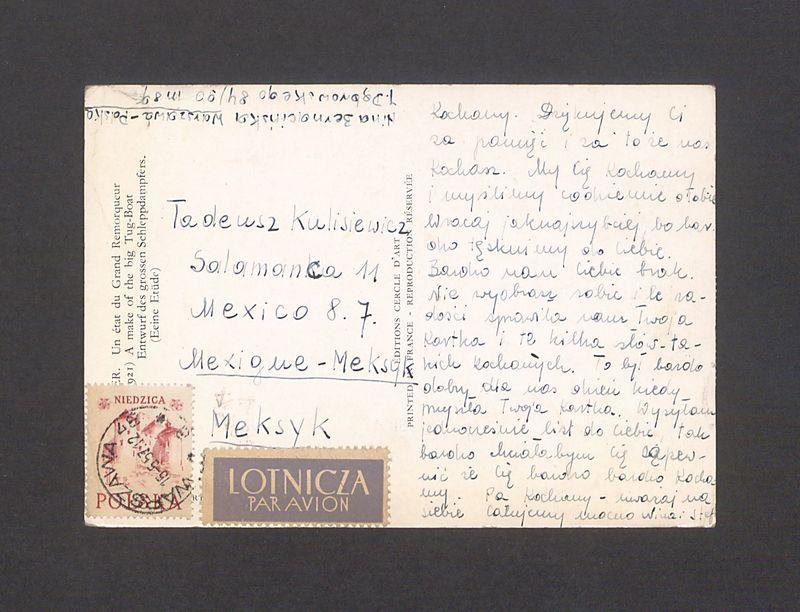 Nina Bernacińska Warszawa - Polska
J. Dąbrowskiego 84/90 m 89
Un état du Grand Remorqueur
1921) A make of the big Tug-Boat
Entwurf des grossen Schleppdampfers.
(Eeine Etüde)
Tadeusz Kulisiewicz
Salamanca 11
Mexico 8. 7.
Mexique - Meksyk
Meksyk
ÉDITIONS CERCLE D'ART
PRINTED FRANCE - REPRODUCTION RÉSERVÉE
NIEDZICA
POLSKA
WARSZAWA
15-5-57.12
LOTNICZA
PAR AVION
Kochany. Dziękujemy Ci
za pamięć i za to że nas
kochasz. My Cię kochamy
i myślimy codziennie o Tobie
Wracaj jaknajszybciej, bo bar-
dzo tęsknimy do Ciebie.
Bardzo nam Ciebie brak.
Nie wyobrasz sobie ile ra-
dości sprawiła nam Twoja
kartka i te kilka słów ta-
kich kochanych. To był bardzo
dobry dla nas dzień kiedy
przyszła Twoja kartka. Wysyłam
jednocześnie list do Ciebie. Tak
bardzo chciałabym Cię zapew-
nić że Cię bardzo bardzo kocha
my. Pa kochany - uważaj na
siebie Całujemy mocno Nina i